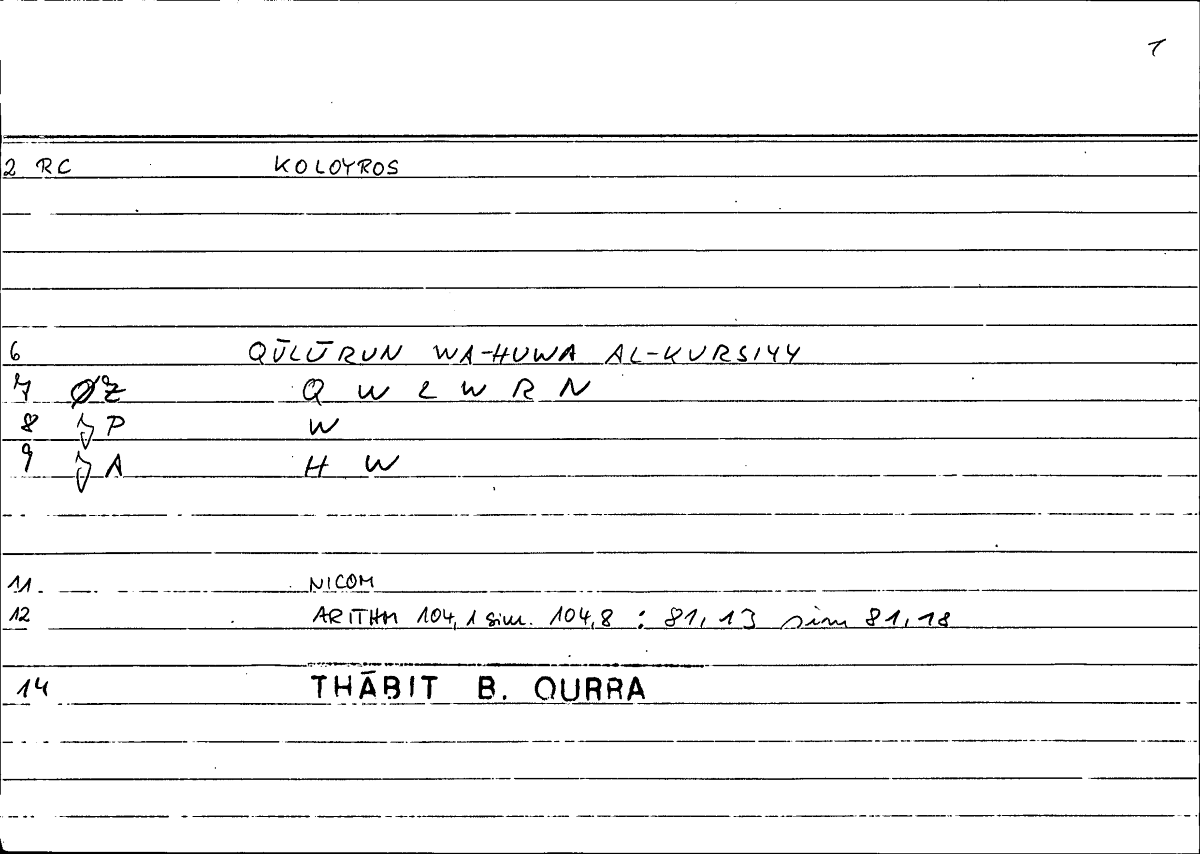 1
2 RC KOLOYROS
6 QŪLŪRUN WA-HUWA AL-KURSIYY
7 ØZ Q W L W R N
8 P W
9 A H W
11 NICOM
12 ARITHM 104,1 sim. 104,8 : 81,13 sim 81,18
14 THĀBIT B. QURRA